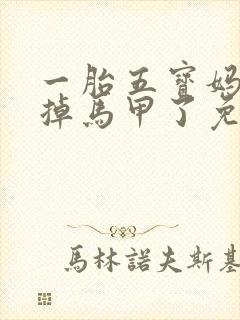 一胎五寶媽
掉馬甲了免
馬林諾夫斯基